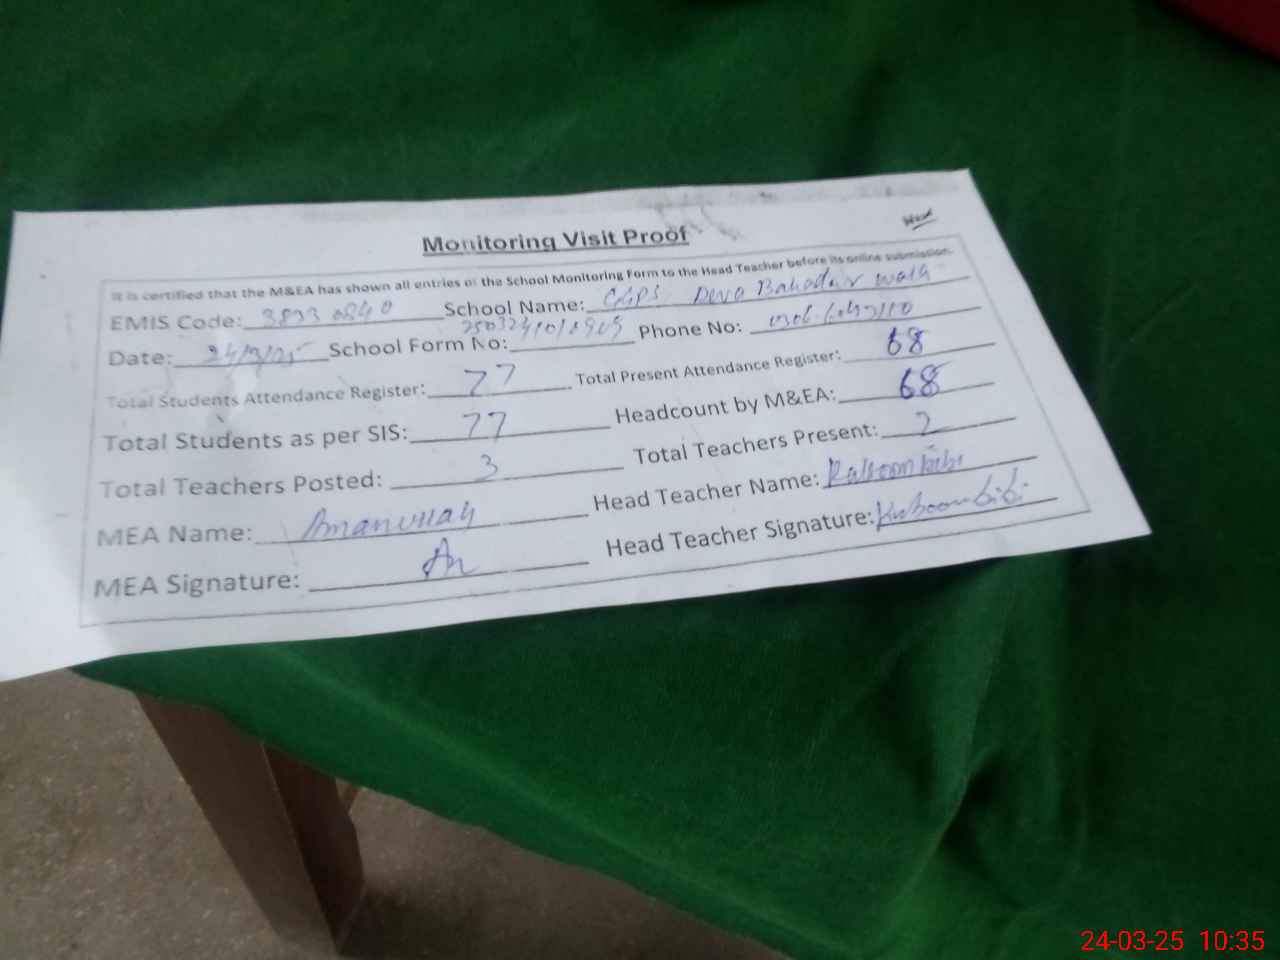 Head
Monitoring Visit Proof
It is certified that the M&EA has shown all entries of the School Monitoring Form to the Head Teacher before its online submission.
EMIS Code: School Name: GGPS Dera Bahadar wala
Date: 24/3/25 School Form No: Phone No:
Total Students Attendance Register: 77 Total Present Attendance Register: 68
Total Students as per SIS: 77 Headcount by M&EA: 68
Total Teachers Posted: 3 Total Teachers Present: 2
MEA Name: Amanullah Head Teacher Name: bibi
MEA Signature: Head Teacher Signature: bibi
24-03-25 10:35